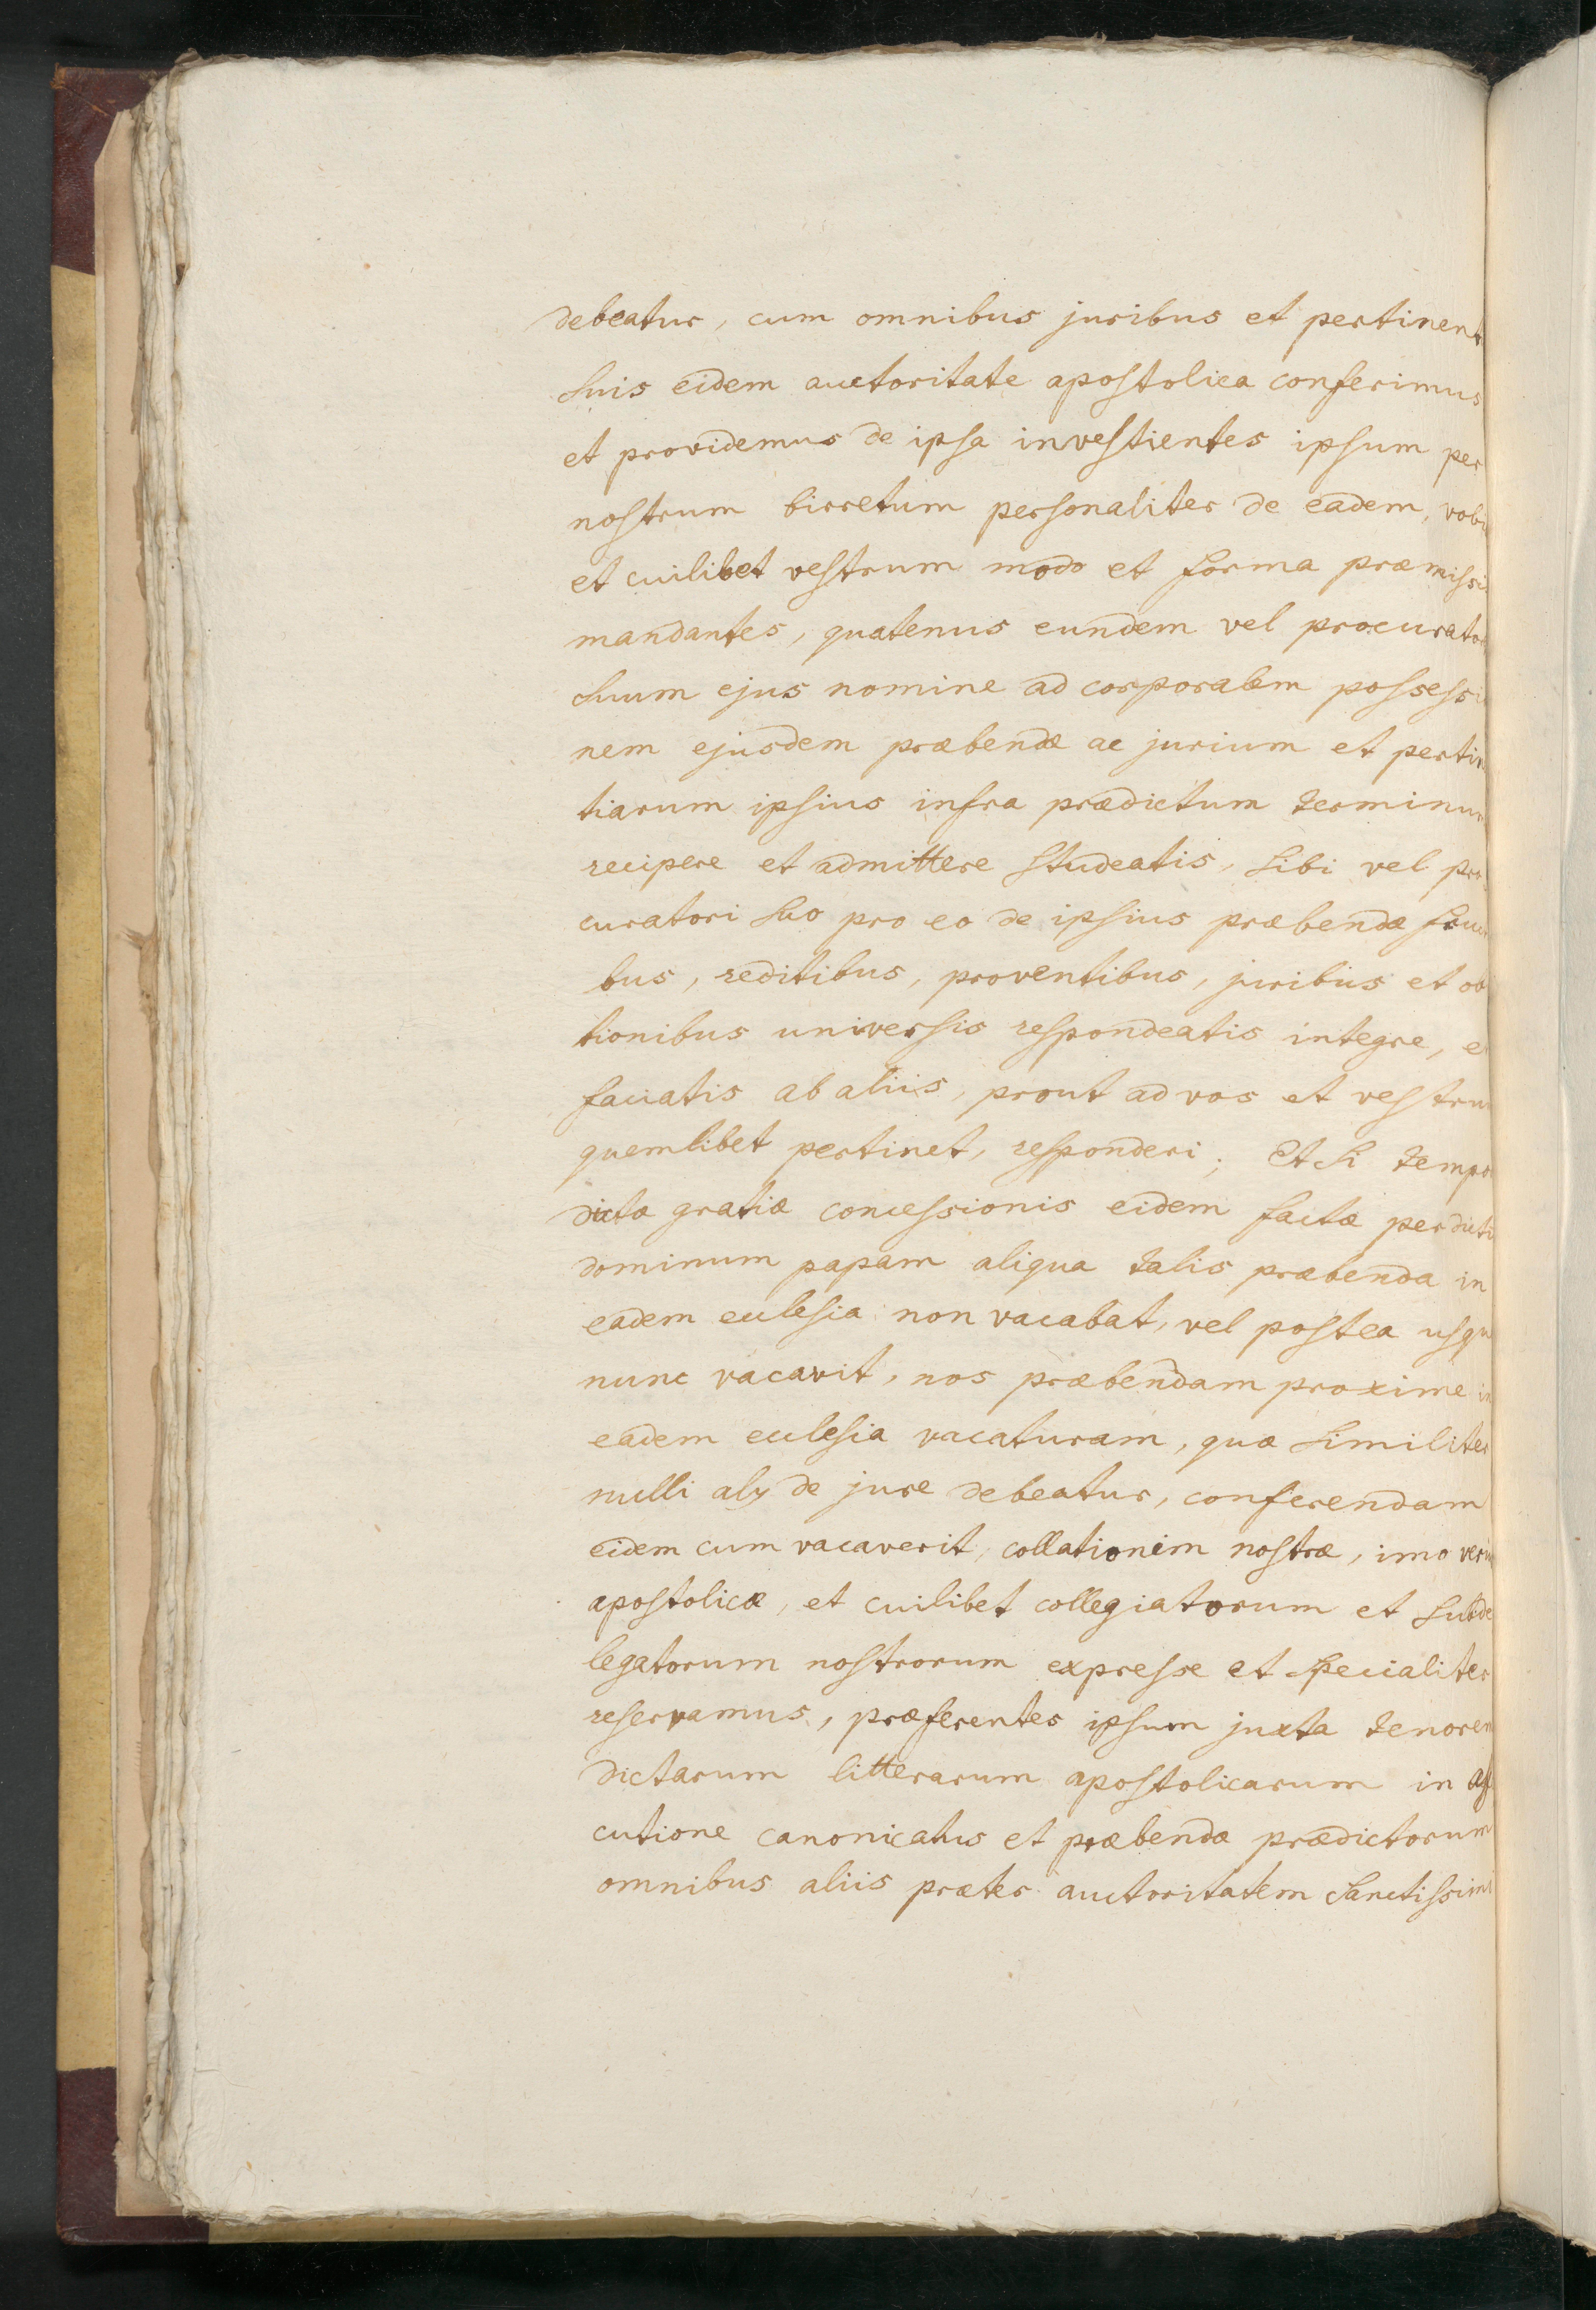 debeatur, cum omnibus juribus et pertinent
suis eidem auctoritate apostolica conferimus
et providemus de ipsa investientes ipsum per
nostrum birretum personaliter de eadem, vobi
et cuilibet vestrum modo et forma præmissi
mandantes, quatenus eundem vel procurato
suum ejus nomine ad corporalem possessi
nem ejusdem præbendæ ac jurium et pertin
tiarum ipsius infra prædictum terminum
recipere et admittere studeatis, sibi vel pro
curatori suo pro eo de ipsius præbendæ fruc
bus, reditibus, proventibus, juribus et ob
tionibus universis respondeatis integre, e
faciatis ab aliis, prout ad vos et vestrum
quemlibet pertinet, responderi; Et si tempo
dictæ gratiæ concessionis eidem factæ per dict
dominum papam aliqua talis præbenda in
eadem ecclesia non vacabat, vel postea usqu
nunc vacavit, nos præbendam proxime in
eadem ecclesia vacaturam, quæ similiter
nulli alij de jure debeatur, conferendam
eidem cum vacaverit, collationem nostræ, imo veri
apostolicæ, et cuilibet collegiatorum et subde
legatorum nostrorum expresse et specialiter
reservamus, præferentes ipsum juxta tenorem
dictarum litterarum apostolicarum in ass
cutione canonicatus et præbendæ prædictorum
omnibus aliis præter auctoritatem sanctissimi